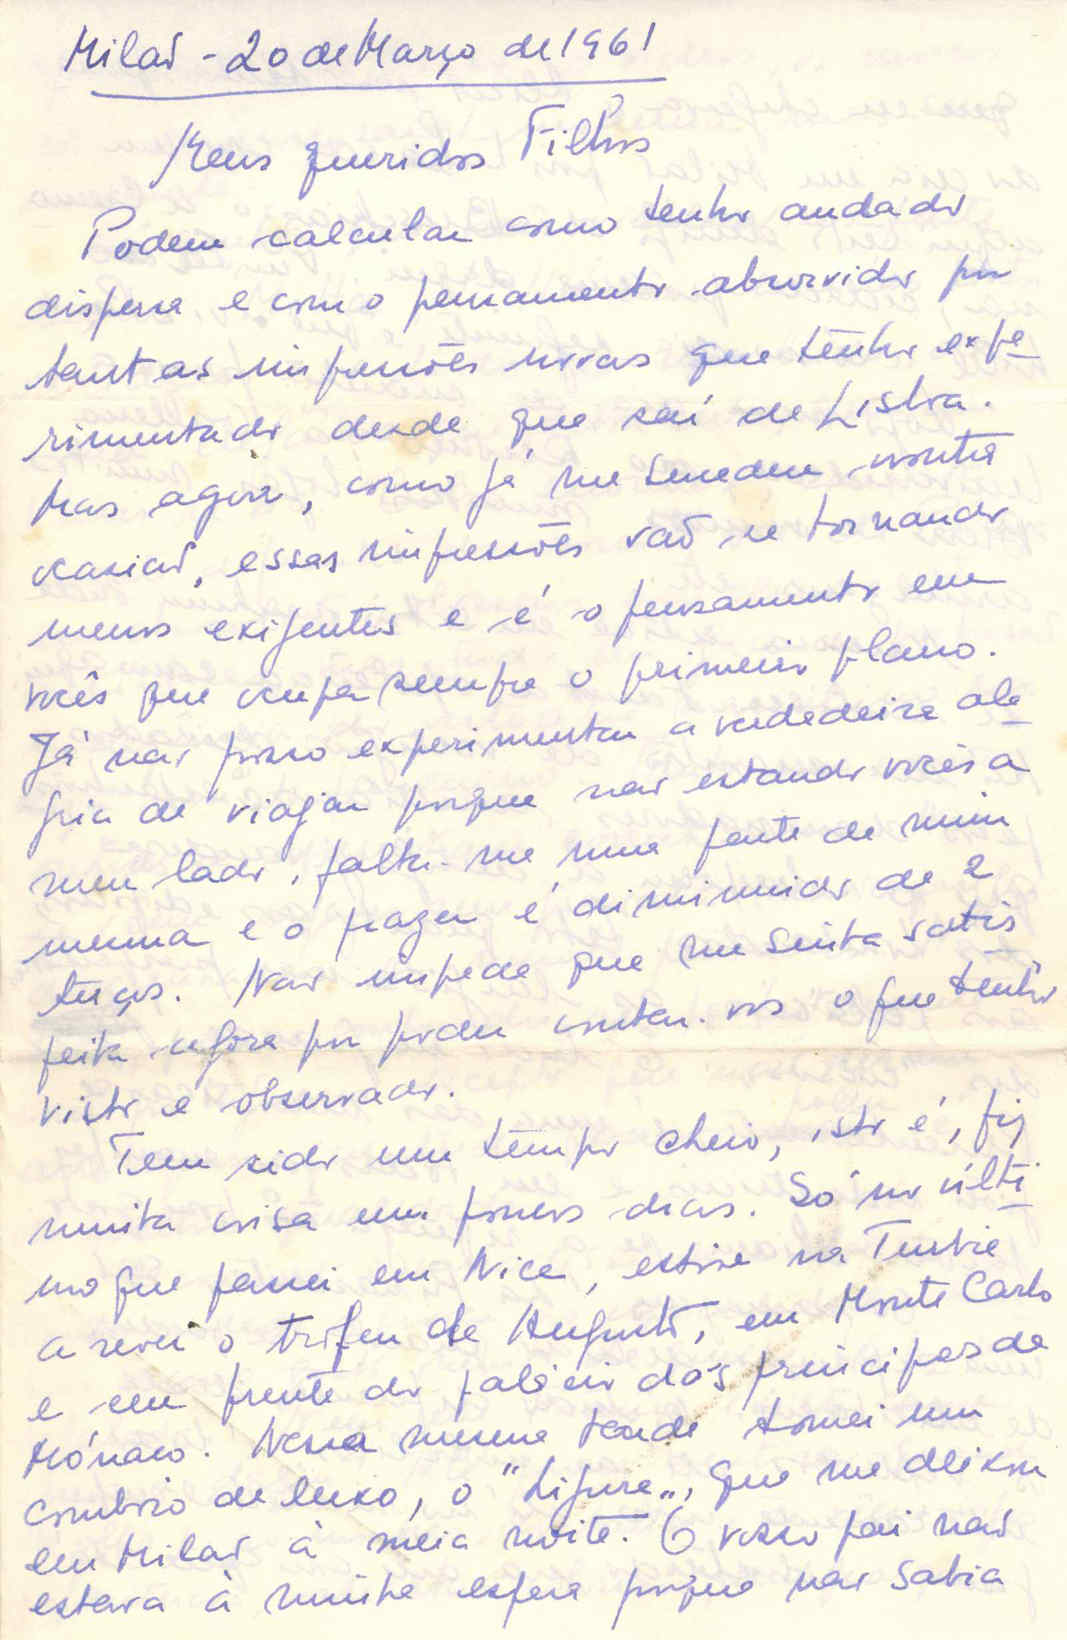 Milaõ - 20 de Março de 1961
Meus queridos Filhos
Podem calcular como tenho andado
dispersa e com o pensamento absorvido por
tantas impressões novas que tenho expe
rimentado desde que saí de Lisboa.
Mas agora, como já me sucedeu noutra
ocasiaõ, essas impressões vaõ-se tornando
menos exigentes e é o pensamento em
vocês que ocupa sempre o primeiro plano.
Já naõ posso experimentar a verdadeira ale
gria de viajar porque naõ estando vocês a
meu lado, falta-me uma parte de mim
mesma e o prazer é diminuido de 2
terços. Naõ impede que me sinta satis
feita agora por poder contar-vos o que tenho
visto e observado.
Tem sido um tempo cheio, isto é, fiz
muita coisa em poucos dias. Só no últi
mo que passei em Nice, estive na Turbie
a rever o trofeu de Augusto, em Monte Carlo
e em frente do palácio dos principes de
Mónaco. Nessa mesma tarde tomei um
comboio de luxo, o "Ligure", que me deixou
em Milaõ à meia noite. O vosso pai naõ
estava à minha espera porque naõ sabia